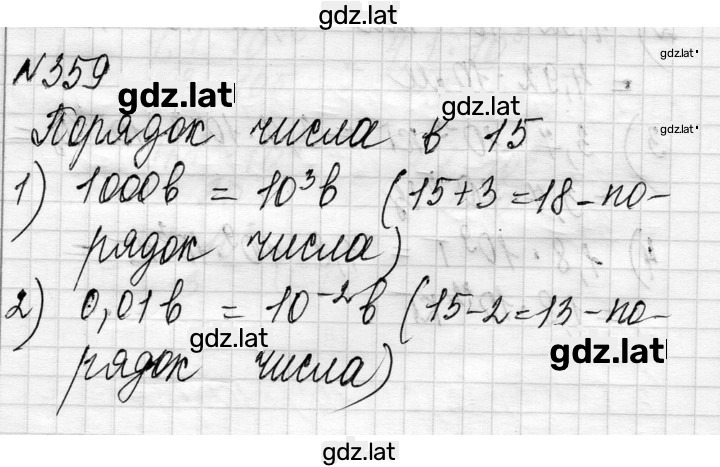 gdz.lat
№359
gdz.lat
gdz.lat
gdz.lat
Порядок числа в 15
gdz.lat
1) 1000в = 10³в (15+3=18 - по-
рядок числа)
2) 0,01в = 10⁻²в (15-2=13 - по-
gdz.lat
gdz.lat
рядок числа)
gdz.lat